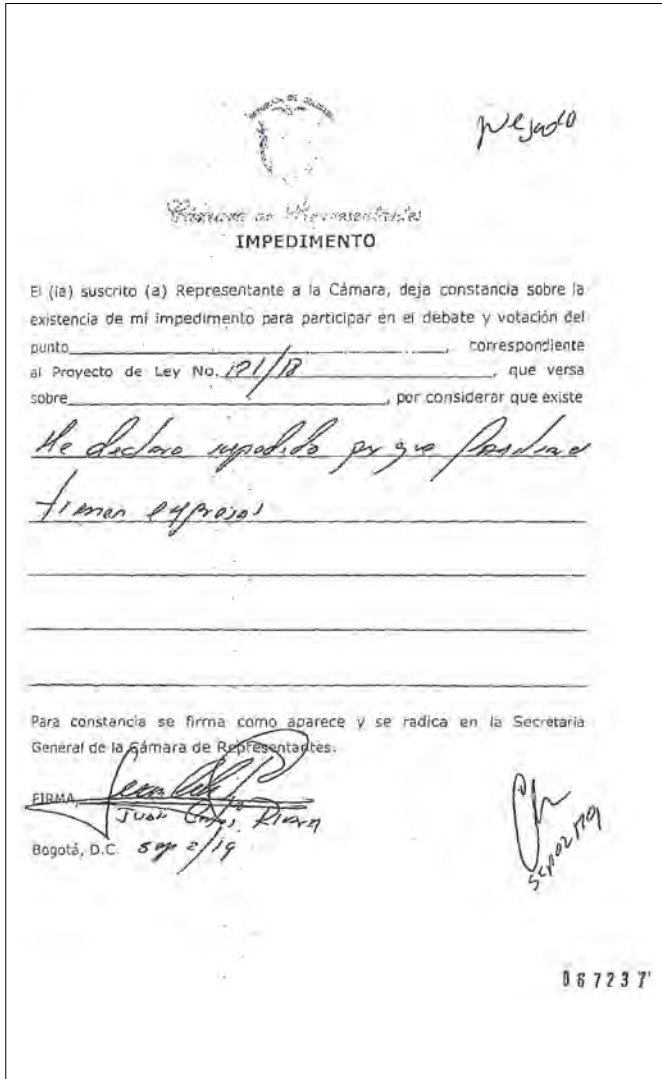 REPUBLICA DE COLOMBIA
Negado
Cámara de Representantes
IMPEDIMENTO
El (la) suscrito (a) Representante a la Cámara, deja constancia sobre la
existencia de mi impedimento para participar en el debate y votación del
punto____, correspondiente
al Proyecto de Ley No. 121/18____, que versa
sobre____, por considerar que existe
Me declaro impedido por que
tienen empresas
Para constancia se firma como aparece y se radica en la Secretaría
General de la Cámara de Representantes.
FIRMA
Juan Carlos Rivera
Bogotá, D.C. Sep 2/19
Sep 02/19
067237